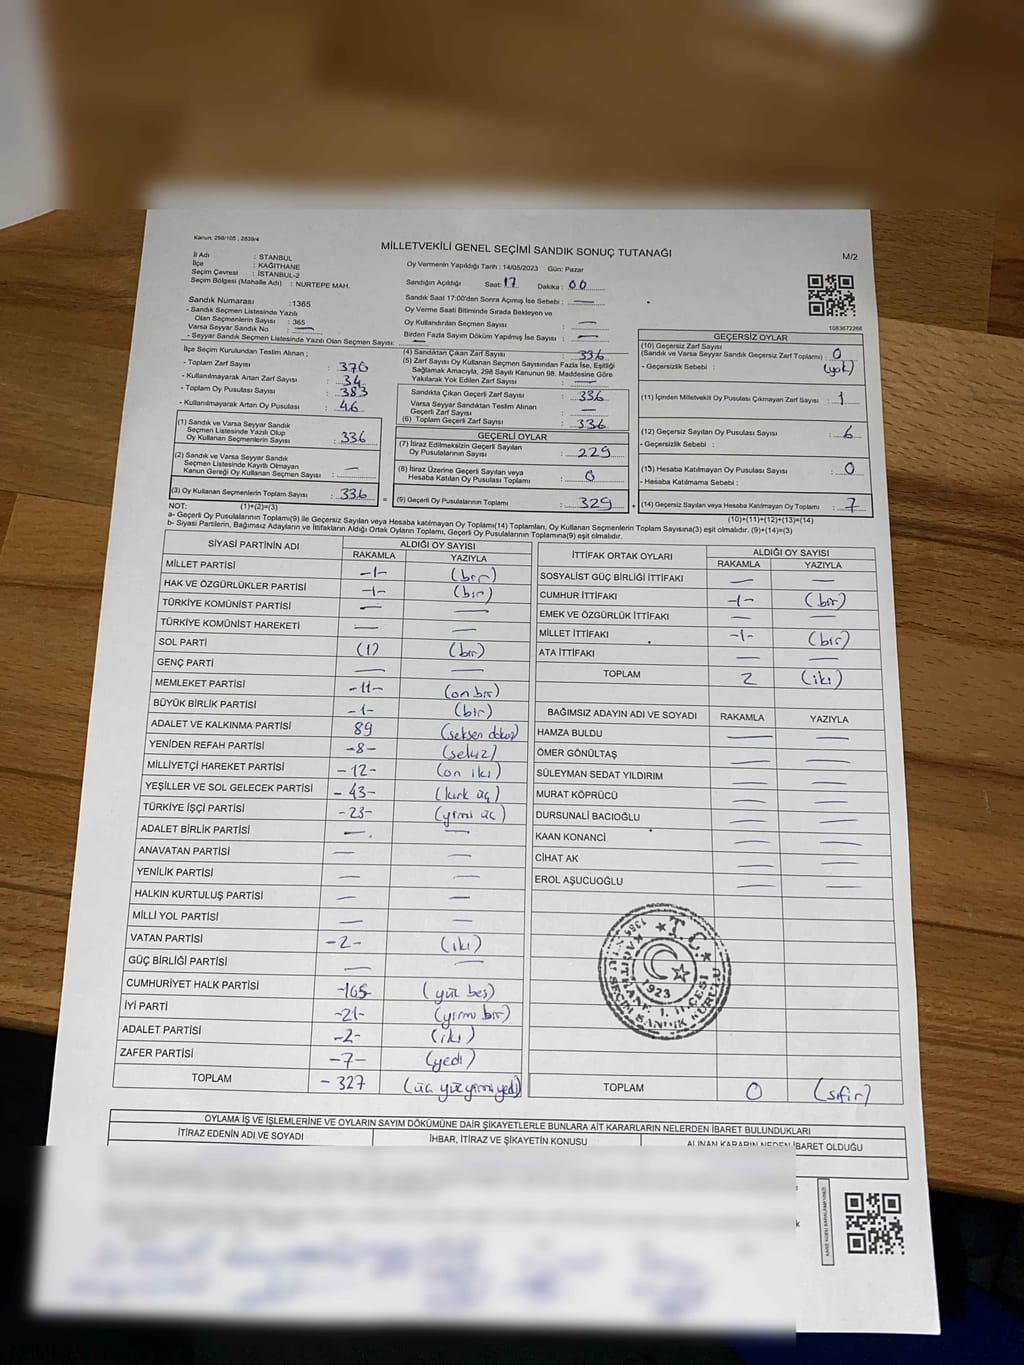 Kanun: 298/105 , 2839/4
MİLLETVEKİLİ GENEL SEÇİMİ SANDIK SONUÇ TUTANAĞI
M/2
İl Adı : STANBUL
İlçe : KAĞITHANE
Seçim Çevresi : İSTANBUL-2
Seçim Bölgesi (Mahalle Adı) : NURTEPE MAH.
Oy Vermenin Yapıldığı Tarih : 14/05/2023 Gün: Pazar
Sandığın Açıldığı Saat: 17 Dakika : 00
Sandık Saat 17:00'den Sonra Açımış İse Sebebi : —
Oy Verme Saati Bitiminde Sırada Bekleyen ve
Oy Kullandırılan Seçmen Sayısı : —
Birden Fazla Sayım Döküm Yapılmış İse Sayısı : —
1083672266
Sandık Numarası :1365
- Sandık Seçmen Listesinde Yazılı
Olan Seçmenlerin Sayısı : 365
Varsa Seyyar Sandık No : —
- Seyyar Sandık Seçmen Listesinde Yazılı Olan Seçmen Sayısı: —
İlçe Seçim Kurulundan Teslim Alınan ;
- Toplam Zarf Sayısı : 370
- Kullanılmayarak Artan Zarf Sayısı : 34
- Toplam Oy Pusulası Sayısı : 383
- Kullanılmayarak Artan Oy Pusulası : 46
(1) Sandık ve Varsa Seyyar Sandık
Seçmen Listesinde Yazılı Olup
Oy Kullanan Seçmenlerin Sayısı : 336
(2) Sandık ve Varsa Seyyar Sandık
Seçmen Listesinde Kayıtlı Olmayan
Kanun Gereği Oy Kullanan Seçmen Sayısı : —
(3) Oy Kullanan Seçmenlerin Toplam Sayısı : 336
(1)+(2)=(3)
(4) Sandıktan Çıkan Zarf Sayısı : 336
(5) Zarf Sayısı Oy Kullanan Seçmen Sayısından Fazla İse, Eşitliği
Sağlamak Amacıyla, 298 Sayılı Kanunun 98. Maddesine Göre
Yakılarak Yok Edilen Zarf Sayısı : —
Sandıkta Çıkan Geçerli Zarf Sayısı : 336
Varsa Seyyar Sandıktan Teslim Alınan
Geçerli Zarf Sayısı : —
(6) Toplam Geçerli Zarf Sayısı : 336
GEÇERLİ OYLAR
(7) İtiraz Edilmeksizin Geçerli Sayılan
Oy Pusulalarının Sayısı : 229
(8) İtiraz Üzerine Geçerli Sayılan veya
Hesaba Katılan Oy Pusulası Toplamı : 0
= (9) Geçerli Oy Pusulalarının Toplamı : 329
GEÇERSİZ OYLAR
(10) Geçersiz Zarf Sayısı
(Sandık ve Varsa Seyyar Sandık Geçersiz Zarf Toplamı) : 0
- Geçersizlik Sebebi : (yok)
(11) İçinden Milletvekili Oy Pusulası Çıkmayan Zarf Sayısı : 1
(12) Geçersiz Sayılan Oy Pusulası Sayısı : 6
- Geçersizlik Sebebi :
(13) Hesaba Katılmayan Oy Pusulası Sayısı : 0
- Hesaba Katılmama Sebebi :
+ (14) Geçersiz Sayılan veya Hesaba Katılmayan Oy Toplamı : 7
(10)+(11)+(12)+(13)=(14)
NOT:
a- Geçerli Oy Pusulalarının Toplamı(9) ile Geçersiz Sayılan veya Hesaba katılmayan Oy Toplamı(14) Toplamları, Oy Kullanan Seçmenlerin Toplam Sayısına(3) eşit olmalıdır. (9)+(14)=(3)
b- Siyasi Partilerin, Bağımsız Adayların ve İttifakların Aldığı Ortak Oyların Toplamı, Geçerli Oy Pusulalarının Toplamına(9) eşit olmalıdır.
SİYASİ PARTİNİN ADI ALDIĞI OY SAYISI
RAKAMLA YAZIYLA
MİLLET PARTİSİ -1- (bir)
HAK VE ÖZGÜRLÜKLER PARTİSİ -1- (bir)
TÜRKİYE KOMÜNİST PARTİSİ — —
TÜRKİYE KOMÜNİST HAREKETİ — —
SOL PARTİ (1) (bir)
GENÇ PARTİ — —
MEMLEKET PARTİSİ -11- (on bir)
BÜYÜK BİRLİK PARTİSİ -1- (bir)
ADALET VE KALKINMA PARTİSİ 89 (seksen dokuz)
YENİDEN REFAH PARTİSİ -8- (sekiz)
MİLLİYETÇİ HAREKET PARTİSİ -12- (on iki)
YEŞİLLER VE SOL GELECEK PARTİSİ -43- (kırk üç)
TÜRKİYE İŞÇİ PARTİSİ -23- (yirmi üç)
ADALET BİRLİK PARTİSİ — —
ANAVATAN PARTİSİ — —
YENİLİK PARTİSİ — —
HALKIN KURTULUŞ PARTİSİ — —
MİLLİ YOL PARTİSİ — —
VATAN PARTİSİ -2- (iki)
GÜÇ BİRLİĞİ PARTİSİ — —
CUMHURİYET HALK PARTİSİ -105- (yüz beş)
İYİ PARTİ -21- (yirmi bir)
ADALET PARTİSİ -2- (iki)
ZAFER PARTİSİ -7- (yedi)
TOPLAM - 327 (üç yüz yirmi yedi)
İTTİFAK ORTAK OYLARI ALDIĞI OY SAYISI
RAKAMLA YAZIYLA
SOSYALİST GÜÇ BİRLİĞİ İTTİFAKI — —
CUMHUR İTTİFAKI -1- (bir)
EMEK VE ÖZGÜRLÜK İTTİFAKI — —
MİLLET İTTİFAKI -1- (bir)
ATA İTTİFAKI — —
TOPLAM 2 (iki)
BAĞIMSIZ ADAYIN ADI VE SOYADI RAKAMLA YAZIYLA
HAMZA BULDU — —
ÖMER GÖNÜLTAŞ — —
SÜLEYMAN SEDAT YILDIRIM — —
MURAT KÖPRÜCÜ — —
DURSUNALİ BACIOĞLU — —
KAAN KONANCİ — —
CİHAT AK — —
EROL AŞUCUOĞLU — —
T.C.
KAĞITHANE 1. İLÇESİ
SEÇİM SANDIK KURULU
1923
TOPLAM 0 (sıfır)
OYLAMA İŞ VE İŞLEMLERİNE VE OYLARIN SAYIM DÖKÜMÜNE DAİR ŞİKAYETLERLE BUNLARA AİT KARARLARIN NELERDEN İBARET BULUNDUKLARI
İTİRAZ EDENİN ADI VE SOYADI İHBAR, İTİRAZ VE ŞİKAYETİN KONUSU ALINAN KARARIN NEDEN İBARET OLDUĞU